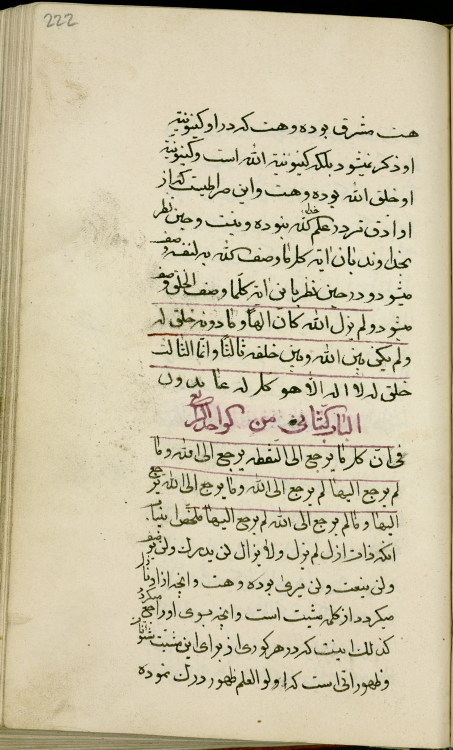 222
هست مشرق بوده و هست که در او کینونیة
او ذکر نمیشود بلکه کینونیة الله است و کینونیة
او خلق الله بوده و هست و این صراطیست که از
او ادق تر در علم الله نبوده و نیست و حین نظر
بخداوند بان آیه کلما وصف الله به لنفسه وصف
میشود و در حین نظر بانی آیه کلما وصف الخلق وصف
میشود و لم یزل الله کان الها و ما دونه خلق له
و لم یکن بین الله و بین خلقه ثالثا و انما الثالث
خلق له لا اله الا هو کل له عابدون
الباب الثانی من الواحد الرابع
فی ان کل ما یرجع الی النقطه یرجع الی الله و ما
لم یرجع الیها لم یرجع الی الله و ما یرجع الی الله یرجع
الیها و ما لم یرجع الی الله لم یرجع الیها ملخص
آنکه ذات ازل لم یزل و لا یزال لن یدرک و لن یوصف
و لن ینعت و لن یری بوده و هست و آنچه از او
میگردد از کلمه مشیت است و آنچه بسوی او راجع میگردد
کذلک اینست که در هر کوری از برای این مشیت
و ظهوراتی است که اولو العلم ظهور درک نموده